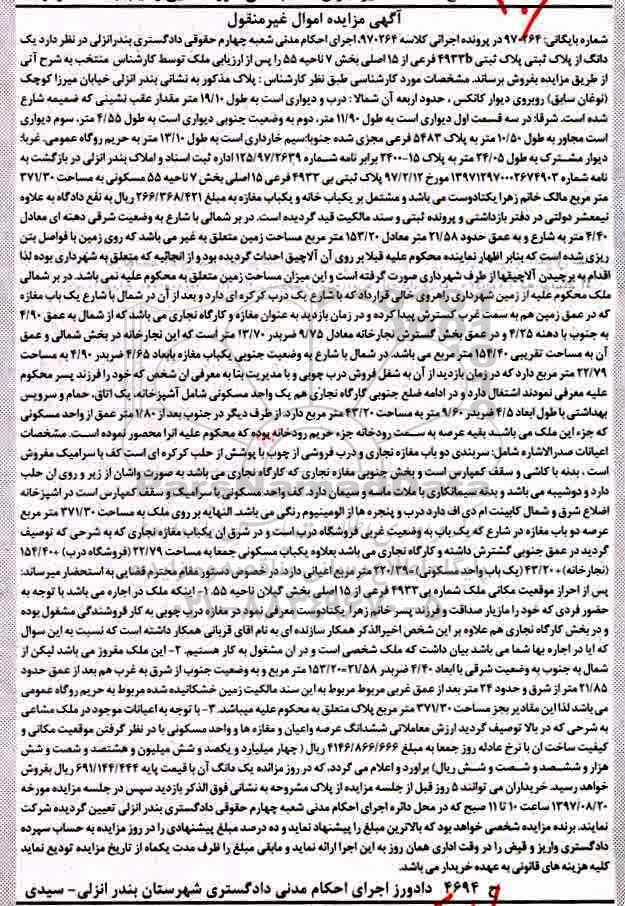 آگهی مزایده اموال غیرمنقول
شماره بایگانی: ۹۷۰۲۶۴ در پرونده اجرائی کلاسه ۹۷۰۲۶۴، اجرای احکام مدنی شعبه چهارم حقوقی دادگستری بندرانزلی در نظر دارد یک
دانگ از پلاک ثبتی پلاک ثبتی ۴۹۳۳b فرعی از ۱۵ اصلی بخش ۷ ناحیه ۵۵ را پس از ارزیابی ملک توسط کارشناس منتخب به شرح آتی
از طریق مزایده بفروش برساند. مشخصات مورد کارشناسی طبق نظر کارشناس : پلاک مذکور به نشانی بندر انزلی خیابان میرزا کوچک
(نوغان سابق) روبروی دیوار کانکس ، حدود اربعه آن شمالا : درب و دیواری است به طول ۱۹/۱۰ متر مقدار عقب نشینی که ضمیمه شارع
شده است. شرقا: در سه قسمت اول دیواری است به طول ۱۱/۹۰ متر، دوم به وضعیت جنوبی دیواری است به طول ۴/۵۵ متر، سوم دیواری
است مجاور به طول ۱۰/۵۰ متر به پلاک ۵۴۸۳ فرعی مجزی شده جنوبا: سیم خارداری است به طول ۱۳/۱۰ متر به حریم روگاه عمومی. غربا:
دیوار مشترک به طول ۲۴/۰۵ متر به پلاک ۱۵-۲۴۰۰ برابر نامه شماره ۱۲۵/۹۷/۲۶۳۹ اداره ثبت اسناد و املاک بندر انزلی در بازگشت به
نامه شماره ۱۳۹۷۱۲۹۷۰۰۰۲۶۷۴۹۰۳ مورخ ۹۷/۲/۱۲ پلاک ثبتی بی ۴۹۳۳ فرعی ۱۵ اصلی بخش ۷ ناحیه ۵۵ مسکونی به مساحت ۳۷۱/۳۰
متر مربع مالک خانم زهرا یکتادوست می باشد و مشتمل بر یکباب خانه و یکباب مغازه به مبلغ ۲۶۶/۳۶۸/۴۲۱ ریال به نفع دادگاه به علاوه
نیمعشر دولتی در دفتر بازداشتی و پرونده ثبتی و سند مالکیت قید گردیده است. در بر شمالی با شارع به وضعیت شرقی دهنه ای معادل
۴/۴۰ متر به شارع و به عمق حدود ۲۱/۵۸ متر معادل ۱۵۳/۲۰ متر مربع مساحت زمین متعلق به غیر می باشد که روی زمین با فواصل بتن
ریزی شده است که بنابر اظهار نماینده محکوم علیه قبلا بر روی آن آلاچیق احداث گردیده بود و از آنجائیه که متعلق به شهرداری بوده لذا
اقدام به برچیدن آلاچیقها از طرف شهرداری صورت گرفته است و این میزان مساحت زمین متعلق به محکوم علیه نمی باشد. در بر شمالی
ملک محکوم علیه از زمین شهرداری راهروی خالی قرارداد که با شارع یک درب کرکره ای دارد و بعد از آن در شمال با شارع یک باب مغازه
که در عمق زمین هم به سمت غرب گسترش پیدا کرده و در زمان بازدید به عنوان مغازه و کارگاه نجاری می باشد که از شمال به عمق ۴/۹۰
به جنوب با دهنه ۴/۲۵ و در عمق بخش گسترش نجارخانه معادل ۹/۷۵ ضربدر ۱۳/۷۰ متر است که این نجارخانه در بخش شمالی و عمق
آن به مساحت تقریبی ۱۵۴/۴۰ متر مربع می باشد. در شمال با شارع به وضعیت جنوبی یکباب مغازه بابعاد ۴/۶۵ ضربدر ۴/۹۰ به مساحت
۲۲/۷۹ متر مربع دارد که در زمان بازدید از آن به شغل فروش درب چوبی و با مدیریت بنا به معرفی آن شخص که خود را فرزند پسر محکوم
علیه معرفی نمودند اشتغال دارد و در ادامه ضلع جنوبی گارگاه نجاری هم یک واحد مسکونی شامل آشپزخانه، یک اتاق، حمام و سرویس
بهداشتی با طول ابعاد ۴/۵ ضربدر ۹/۶۰ متر به مساحت ۴۳/۲۰ متر مربع دارد. از طرف دیگر در جنوب بعد از ۱/۸۰ متر عمق از واحد مسکونی
که جزء این ملک می باشد بقیه عرصه به سمت رودخانه جزء حریم رودخانه بوده که محکوم علیه آنرا محصور نموده است. مشخصات
اعیانات صدرالاشاره شامل: سربندی دو باب مغازه نجاری و درب فروشی از چوب با پوشش از حلب کرکره ای است کف با سرامیک مفروش
است ، بدنه با کاشی و سقف کمپارس است و بخش جنوبی مغازه نجاری که کارگاه نجاری می باشد به صورت واشان از زیر و روی آن حلب
دارد و دوشیبه می باشد و بدنه سیمانکاری با ملات ماسه و سیمان دارد. کف واحد مسکونی با سرامیک و سقف کمپارس است در آشپزخانه
اضلاع شرق و شمال کابینت ام دی اف دارد درب و پنجره ها از آلومینیوم رنگی می باشد. النهایه بر روی ملک به مساحت ۳۷۱/۳۰ متر مربع
عرصه دو باب مغازه در شارع که یک باب به وضعیت غربی فروشگاه درب است و در شرق آن یکباب مغازه نجاری که به شرحی که توصیف
گردید در عمق جنوبی گسترش داشته و کارگاه نجاری می باشد بعلاوه یکباب مسکونی جمعا به مساحت ۲۲/۷۹ (فروشگاه درب) +۱۵۴/۴۰
(نجارخانه)+۴۳/۲۰ (یک باب واحد مسکونی)=۲۲۰/۳۹ متر مربع اعیانی دارد. در خصوص دستور مقام محترم قضایی به استحضار میرساند:
پس از احراز موقعیت مکانی ملک شماره بی ۴۹۳۳ فرعی از ۱۵ اصلی بخش گیلان ناحیه ۵۵، ۱- اینکه ملک در اجاره می باشد با توجه به
حضور فردی که خود را مازیار صداقت و فرزند پسر خانم زهرا یکتادوست معرفی نمود در مغازه درب چوبی به کار فروشندگی مشغول بوده
و در بخش کارگاه نجاری هم علاوه بر این شخص اخیرالذکر همکار سازنده ای به نام آقای قربانی همکار داشته است که نسبت به این سوال
که آیا در اجاره بها شما می باشد بیان داشت که ملک شخصی است و در آن مشغول به کار هستیم. ۲- این ملک مفروز می باشد لیکن از
شمال به جنوب به وضعیت شرقی با ابعاد ۴/۴۰ ضربدر ۲۱/۵۸=۱۵۳/۲۰ متر مربع و به وضعیت جنوب از شرق به غرب هم بعد از عمق حدود
۲۱/۸۵ متر از شرق و حدود ۲۴ متر بعد از عمق غربی مربوط مربوط به این سند مالکیت زمین خشکانیده شده مربوط به حریم روگاه عمومی
می باشد لذا این مقادیر بجز مساحت ۳۷۱/۳۰ متر مربع پلاک متعلق به محکوم علیه میباشد. ۳- با توجه به اعیانات موجود در ملک مشاعی
به شرحی که در بالا توصیف گردید ارزش معاملاتی ششدانگ عرصه واعیان و مغازه ها و واحد مسکونی با در نظر گرفتن موقعیت مکانی و
کیفیت ساخت آن با نرخ عادله روز جمعا به مبلغ ۴۱۴۶/۸۶۶/۶۶۶ ریال ( چهار میلیارد و یکصد و شش میلیون و هشتصد و شصت و شش
هزار و ششصد و شصت و شش ریال) برآورد و اعلام می گردد، که در روز مزائده یک دانگ آن با قیمت پایه ۶۹۱/۱۴۴/۴۴۴ ریال بفروش
خواهد رسید. خریداران می توانند ۵ روز قبل از جلسه مزایده از پلاک مشروحه به نشانی فوق الذکر بازدید سپس در جلسه مزایده مورخه
۱۳۹۷/۰۸/۲۰ ساعت ۱۰ تا ۱۱ صبح که در محل دائره اجرای احکام مدنی شعبه چهارم حقوقی دادگستری بندر انزلی تعیین گردیده شرکت
نمایند. برنده مزایده شخصی خواهد بود که بالاترین مبلغ را پیشنهاد نماید و ده درصد مبلغ پیشنهادی را در روز مزایده به حساب سپرده
دادگستری واریز و قبض را در وقت اداری همان روز به این اجرا ارائه نماید و مابقی مبلغ را ظرف مدت یکماه از تاریخ مزایده تودیع نماید
کلیه هزینه های قانونی به عهده خریدار می باشد.
ح ۴۶۹۴ دادورز اجرای احکام مدنی دادگستری شهرستان بندر انزلی- سیدی